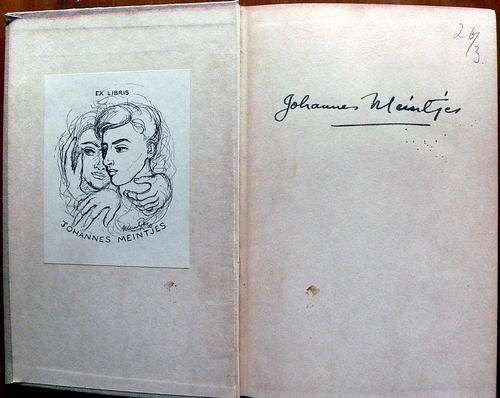 EX LIBRIS
JOHANNES MEINTJES
26/3.
Johannes Meintjes